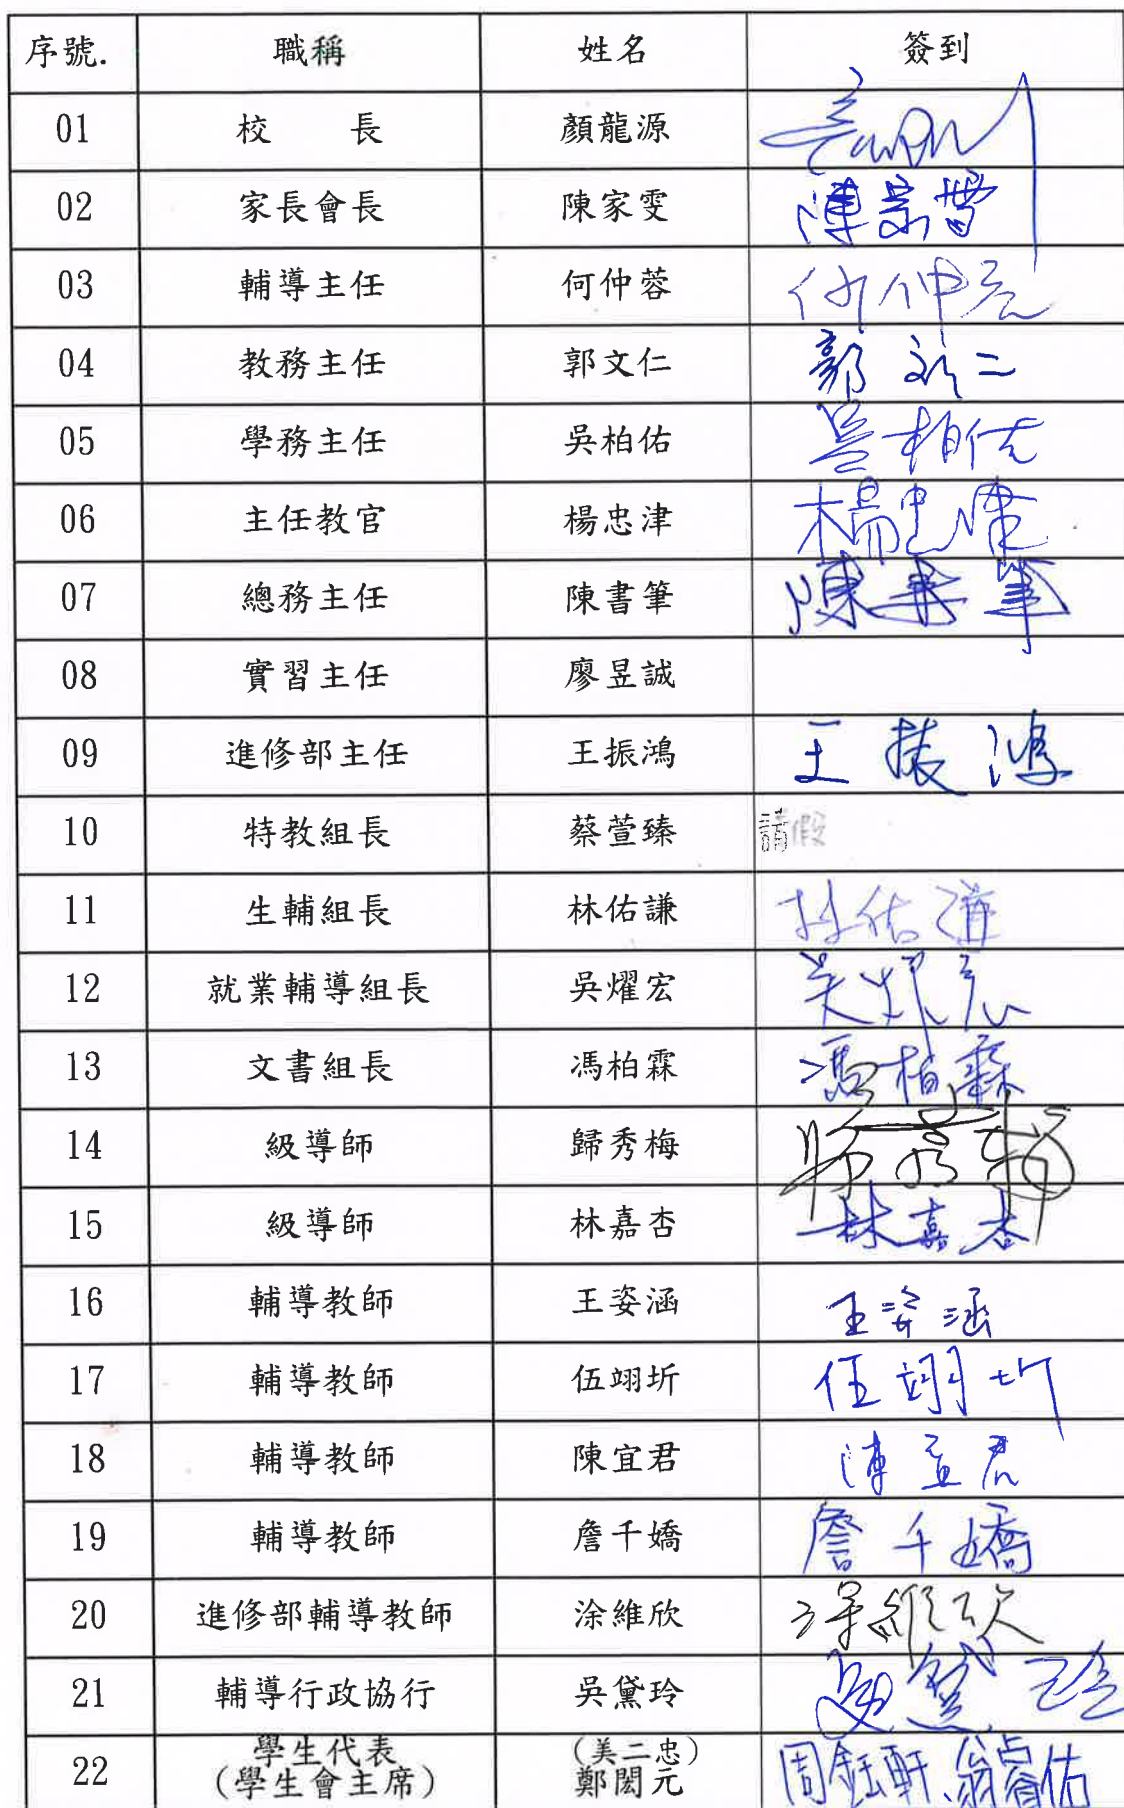 序號. 職稱 姓名 簽到
01 校 長 顏龍源
02 家長會長 陳家雯 陳家雯
03 輔導主任 何仲蓉 何仲蓉
04 教務主任 郭文仁 郭文仁
05 學務主任 吳柏佑 吳柏佑
06 主任教官 楊忠津 楊忠津
07 總務主任 陳書筆 陳書筆
08 實習主任 廖昱誠
09 進修部主任 王振鴻 王振鴻
10 特教組長 蔡萱臻 請假
11 生輔組長 林佑謙 林佑謙
12 就業輔導組長 吳燿宏 吳燿宏
13 文書組長 馮柏霖 馮柏霖
14 級導師 歸秀梅 歸秀梅
15 級導師 林嘉杏 林嘉杏
16 輔導教師 王姿涵 王姿涵
17 輔導教師 伍翊圻 伍翊圻
18 輔導教師 陳宜君 陳宜君
19 輔導教師 詹千嬌 詹千嬌
20 進修部輔導教師 涂維欣 涂維欣
21 輔導行政協行 吳黛玲 吳黛玲
22 學生代表 (美二忠)
(學生會主席) 鄭閎元 周鈺軒、翁睿佑